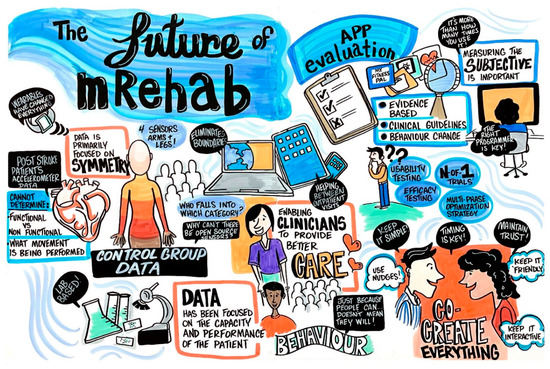 The future of
mRehab
APP
evaluation
IT'S MORE
THAN HOW
MANY TIMES
YOU USE
IT!
MEASURING THE
SUBJECTIVE
IS IMPORTANT
MY
FITNESS
PAL
EVIDENCE
BASED
CLINICAL GUIDELINES
BEHAVIOUR CHANGE
THE
RIGHT
PROGRAMME
IS KEY!
WEARABLES
HAVE CHANGED
EVERYTHING
DATA IS
PRIMARILY
FOCUSED ON
SYMMETRY
4 SENSORS
ARMS +
LEGS!
ELIMINATE
POST STROKE
PATIENT'S
ACCELEROMETER
DATA
CANNOT
DETERMINE:
FUNCTIONAL
VS
NON FUNCTIONAL
WHAT MOVEMENT
IS BEING PERFORMED
CONTROL GROUP
DATA
WHO FALLS INTO
WHICH CATEGORY?
WHY CAN'T THERE
BE OPEN SOURCE
HELPING
BETWEEN
OUTPATIENT
VISITS
ENABLING
CLINICIANS
TO PROVIDE
BETTER
CARE
???
USABILITY
TESTING
EFFICACY
TESTING
N-OF-1
TRIALS
MULTI-PHASE
OPTIMIZATION
STRATEGY
LAB
BASED!
DATA
HAS BEEN FOCUSED
ON THE CAPACITY
AND PERFORMANCE
OF THE PATIENT
JUST BECAUSE
PEOPLE CAN
DOESN'T MEAN
THEY WILL!
BEHAVIOUR
KEEP
IT SIMPLE
TIMING
IS KEY!
MAINTAIN
TRUST!
USE
NUDGES!
KEEP IT
FRIENDLY
KEEP IT
INTERACTIVE
CO-
CREATE
EVERYTHING